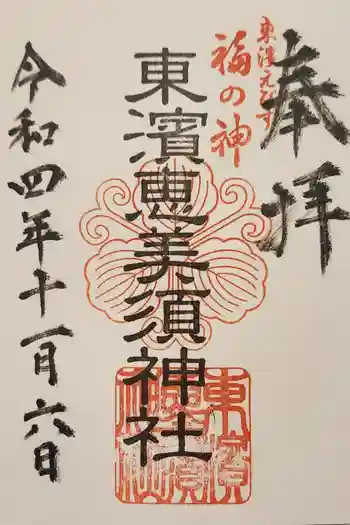 奉拝
東濱えびす
福の神
東濱恵美須神社
令和四年十一月六日